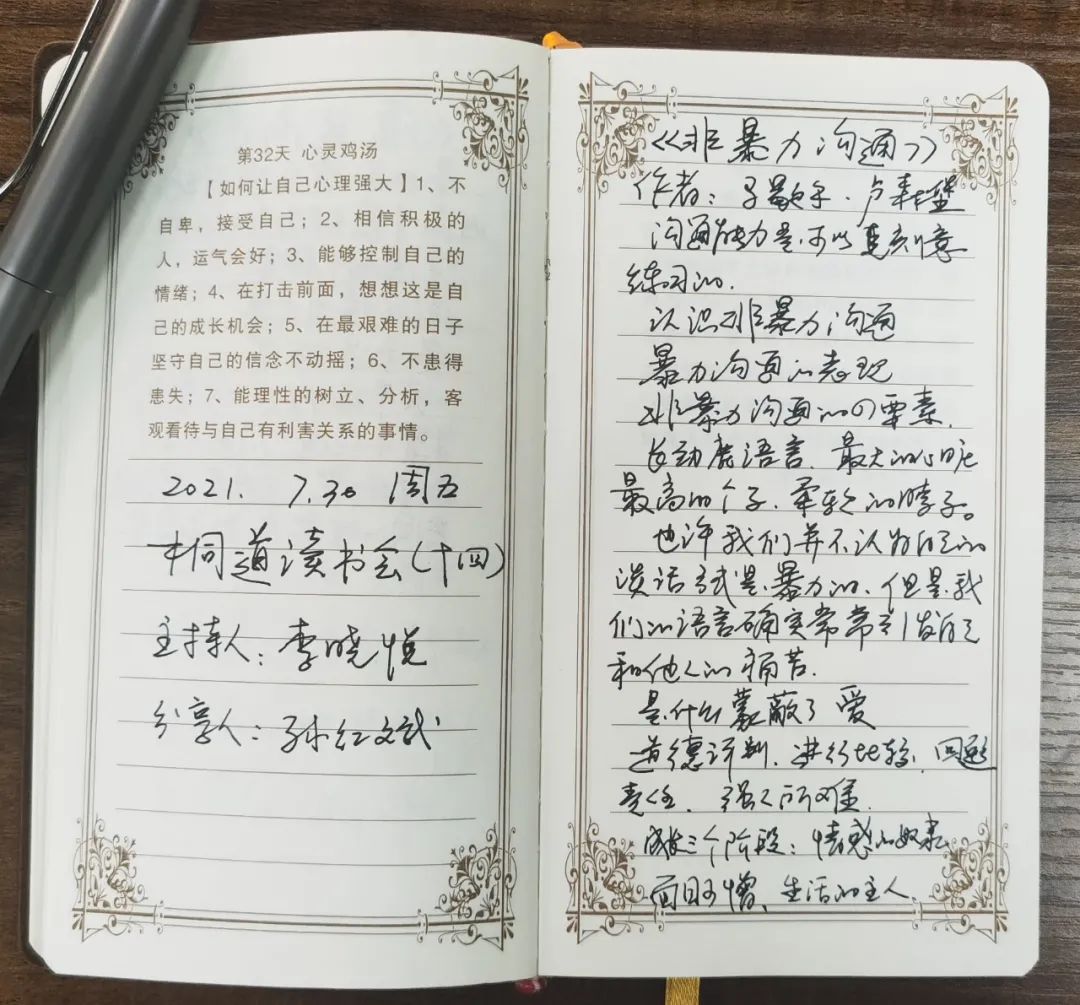 第32天 心灵鸡汤
【如何让自己心理强大】1、不
自卑，接受自己；2、相信积极的
人，运气会好；3、能够控制自己的
情绪；4、在打击前面，想想这是自
己的成长机会；5、在最艰难的日子
坚守自己的信念不动摇；6、不患得
患失；7、能理性的树立、分析，客
观看待与自己有利害关系的事情。
2021. 7.30 周五
同道读书会(十四)
主持人：李晓悦
分享人：孙红文武
《非暴力沟通》
作者：马歇尔·卢森堡
沟通能力是可以更刻意
练习的.
认识非暴力沟通
暴力沟通的表现
非暴力沟通的的要素.
长劲鹿语言、最大的心脏
最高的个子、柔软的脖子。
也许我们并不认为自己的
谈话方式是暴力的、但是我
们的语言确实常常引发自己
和他人的痛苦.
是什么蒙蔽了爱
道德评判、进行比较、回避
责任、强人所难.
成长三个阶段：情感的奴隶
面目可憎、生活的主人